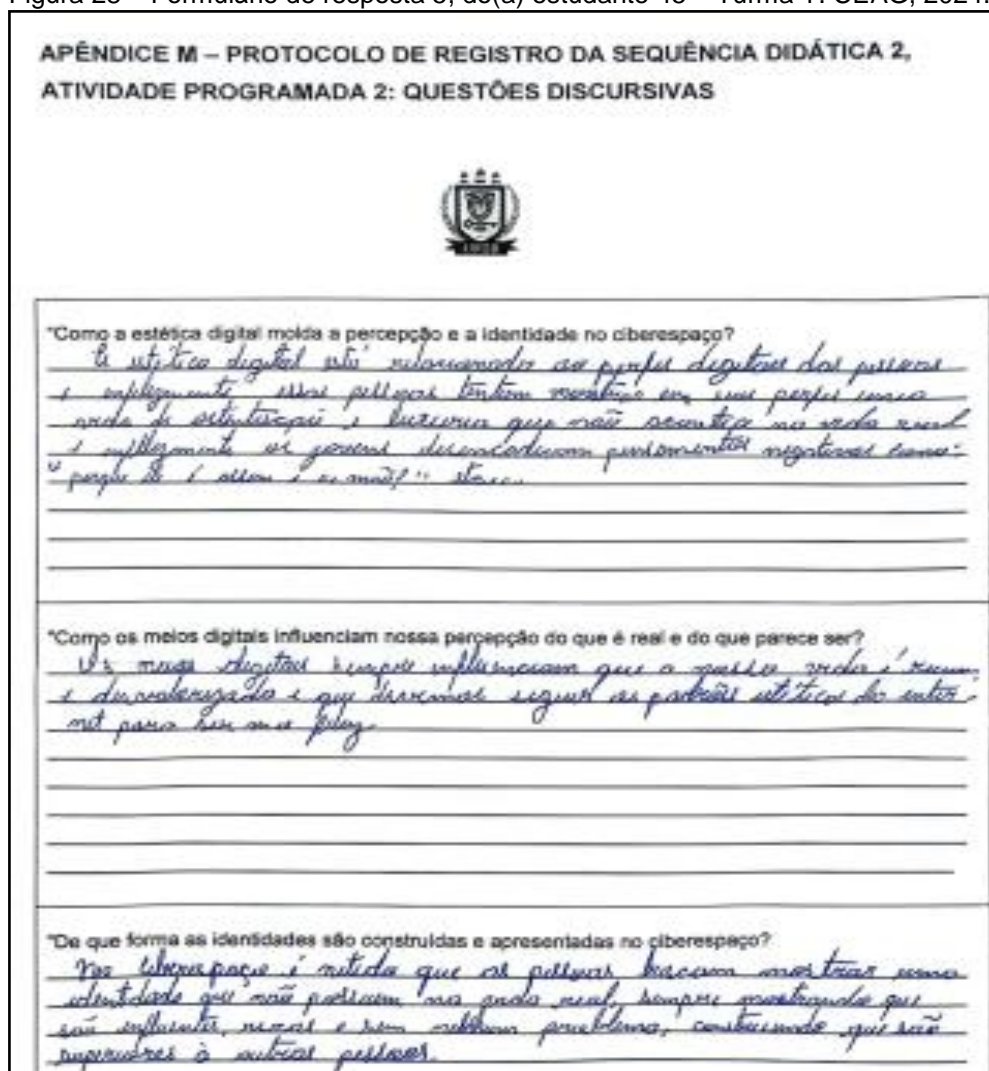 APÊNDICE M – PROTOCOLO DE REGISTRO DA SEQUÊNCIA DIDÁTICA 2,
ATIVIDADE PROGRAMADA 2: QUESTÕES DISCURSIVAS
"Como a estética digital molda a percepção e a identidade no ciberespaço?
A estética digital está relacionada ao perfis digitais das pessoas
e infelizmente essas pessoas tentam mostrar em seus perfis uma
vida de ostentação e luxuria que não acontece na vida real
e infelizmente os jovens desencadeiam pensamentos negativos como:
"porque é assim e eu não?"
"Como os meios digitais influenciam nossa percepção do que é real e do que parece ser?
Os meios digitais sempre influenciam que a nossa vida é ruim
e desvalorizada e que devemos seguir os padrões estéticos da inter-
net para ser feliz.
"De que forma as identidades são construídas e apresentadas no ciberespaço?
No ciberespaço é nitido que as pessoas buscam mostrar uma
identidade que não possuem na vida real, sempre mostrando que
são influentes, ricas e sem nenhum problema, que são
superiores à outras pessoas.